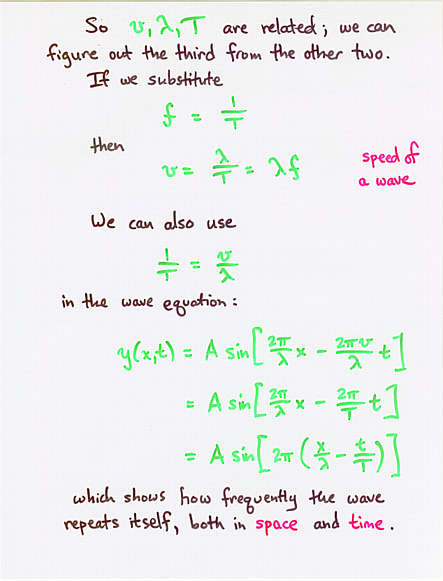 So v, λ, T are related; we can
figure out the third from the other two.
If we substitute
f = 1/T
then
v = λ/T = λf
speed of
a wave
We can also use
1/T = v/λ
in the wave equation:
y(x,t) = A sin[2π/λ x - 2πv/λ t]
= A sin[2π/λ x - 2π/T t]
= A sin[2π(x/λ - t/T)]
which shows how frequently the wave
repeats itself, both in space and time.